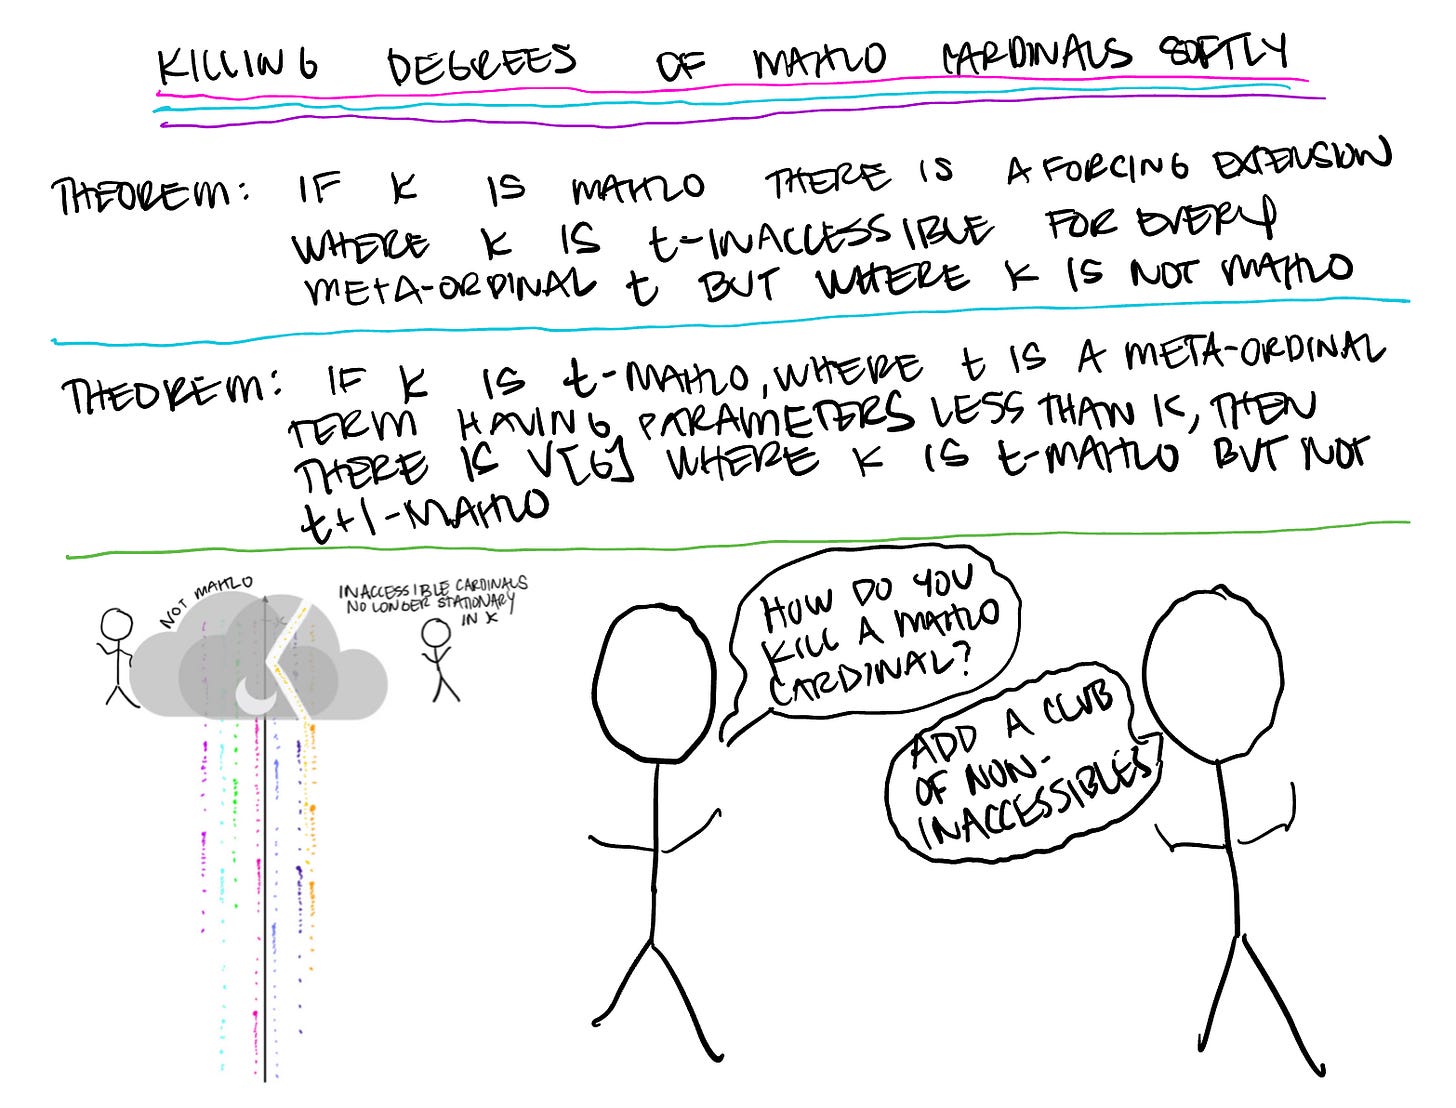 KILLING DEGREES OF MAHLO CARDINALS SOFTLY
THEOREM: IF K IS MAHLO THERE IS A FORCING EXTENSION
WHERE K IS t-INACCESSIBLE FOR EVERY
META-ORDINAL t BUT WHERE K IS NOT MAHLO
THEOREM: IF K IS t-MAHLO, WHERE t IS A META-ORDINAL
TERM HAVING PARAMETERS LESS THAN K, THEN
THERE IS V[G] WHERE K IS t-MAHLO BUT NOT
t+1-MAHLO
NOT MAHLO
INACCESSIBLE CARDINALS
NO LONGER STATIONARY
IN K
HOW DO YOU
KILL A MAHLO
CARDINAL?
ADD A CLUB
OF NON-
INACCESSIBLES